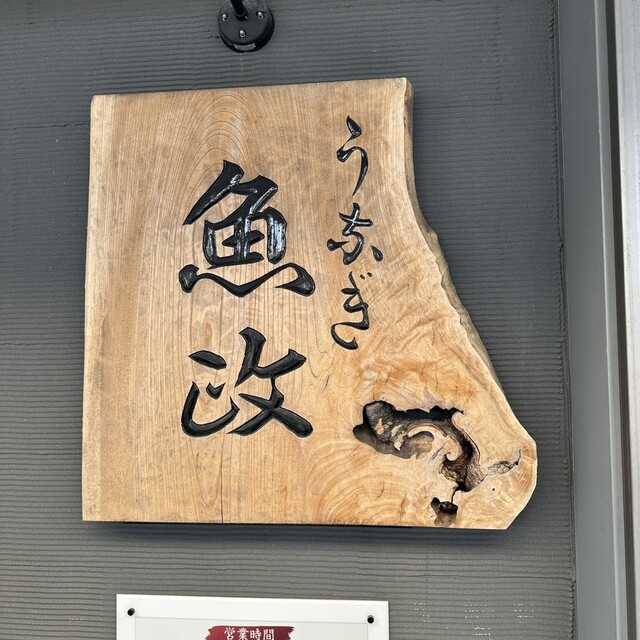 うなぎ
魚政
営業時間